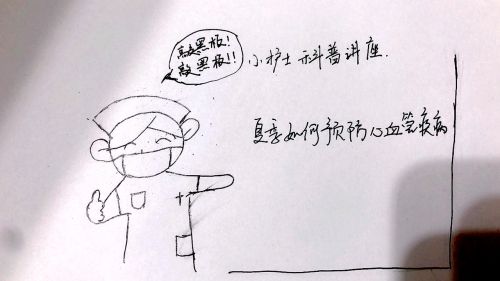 敲黑板!
敲黑板!!
小护士科普讲座.
夏季如何预防心血管疾病